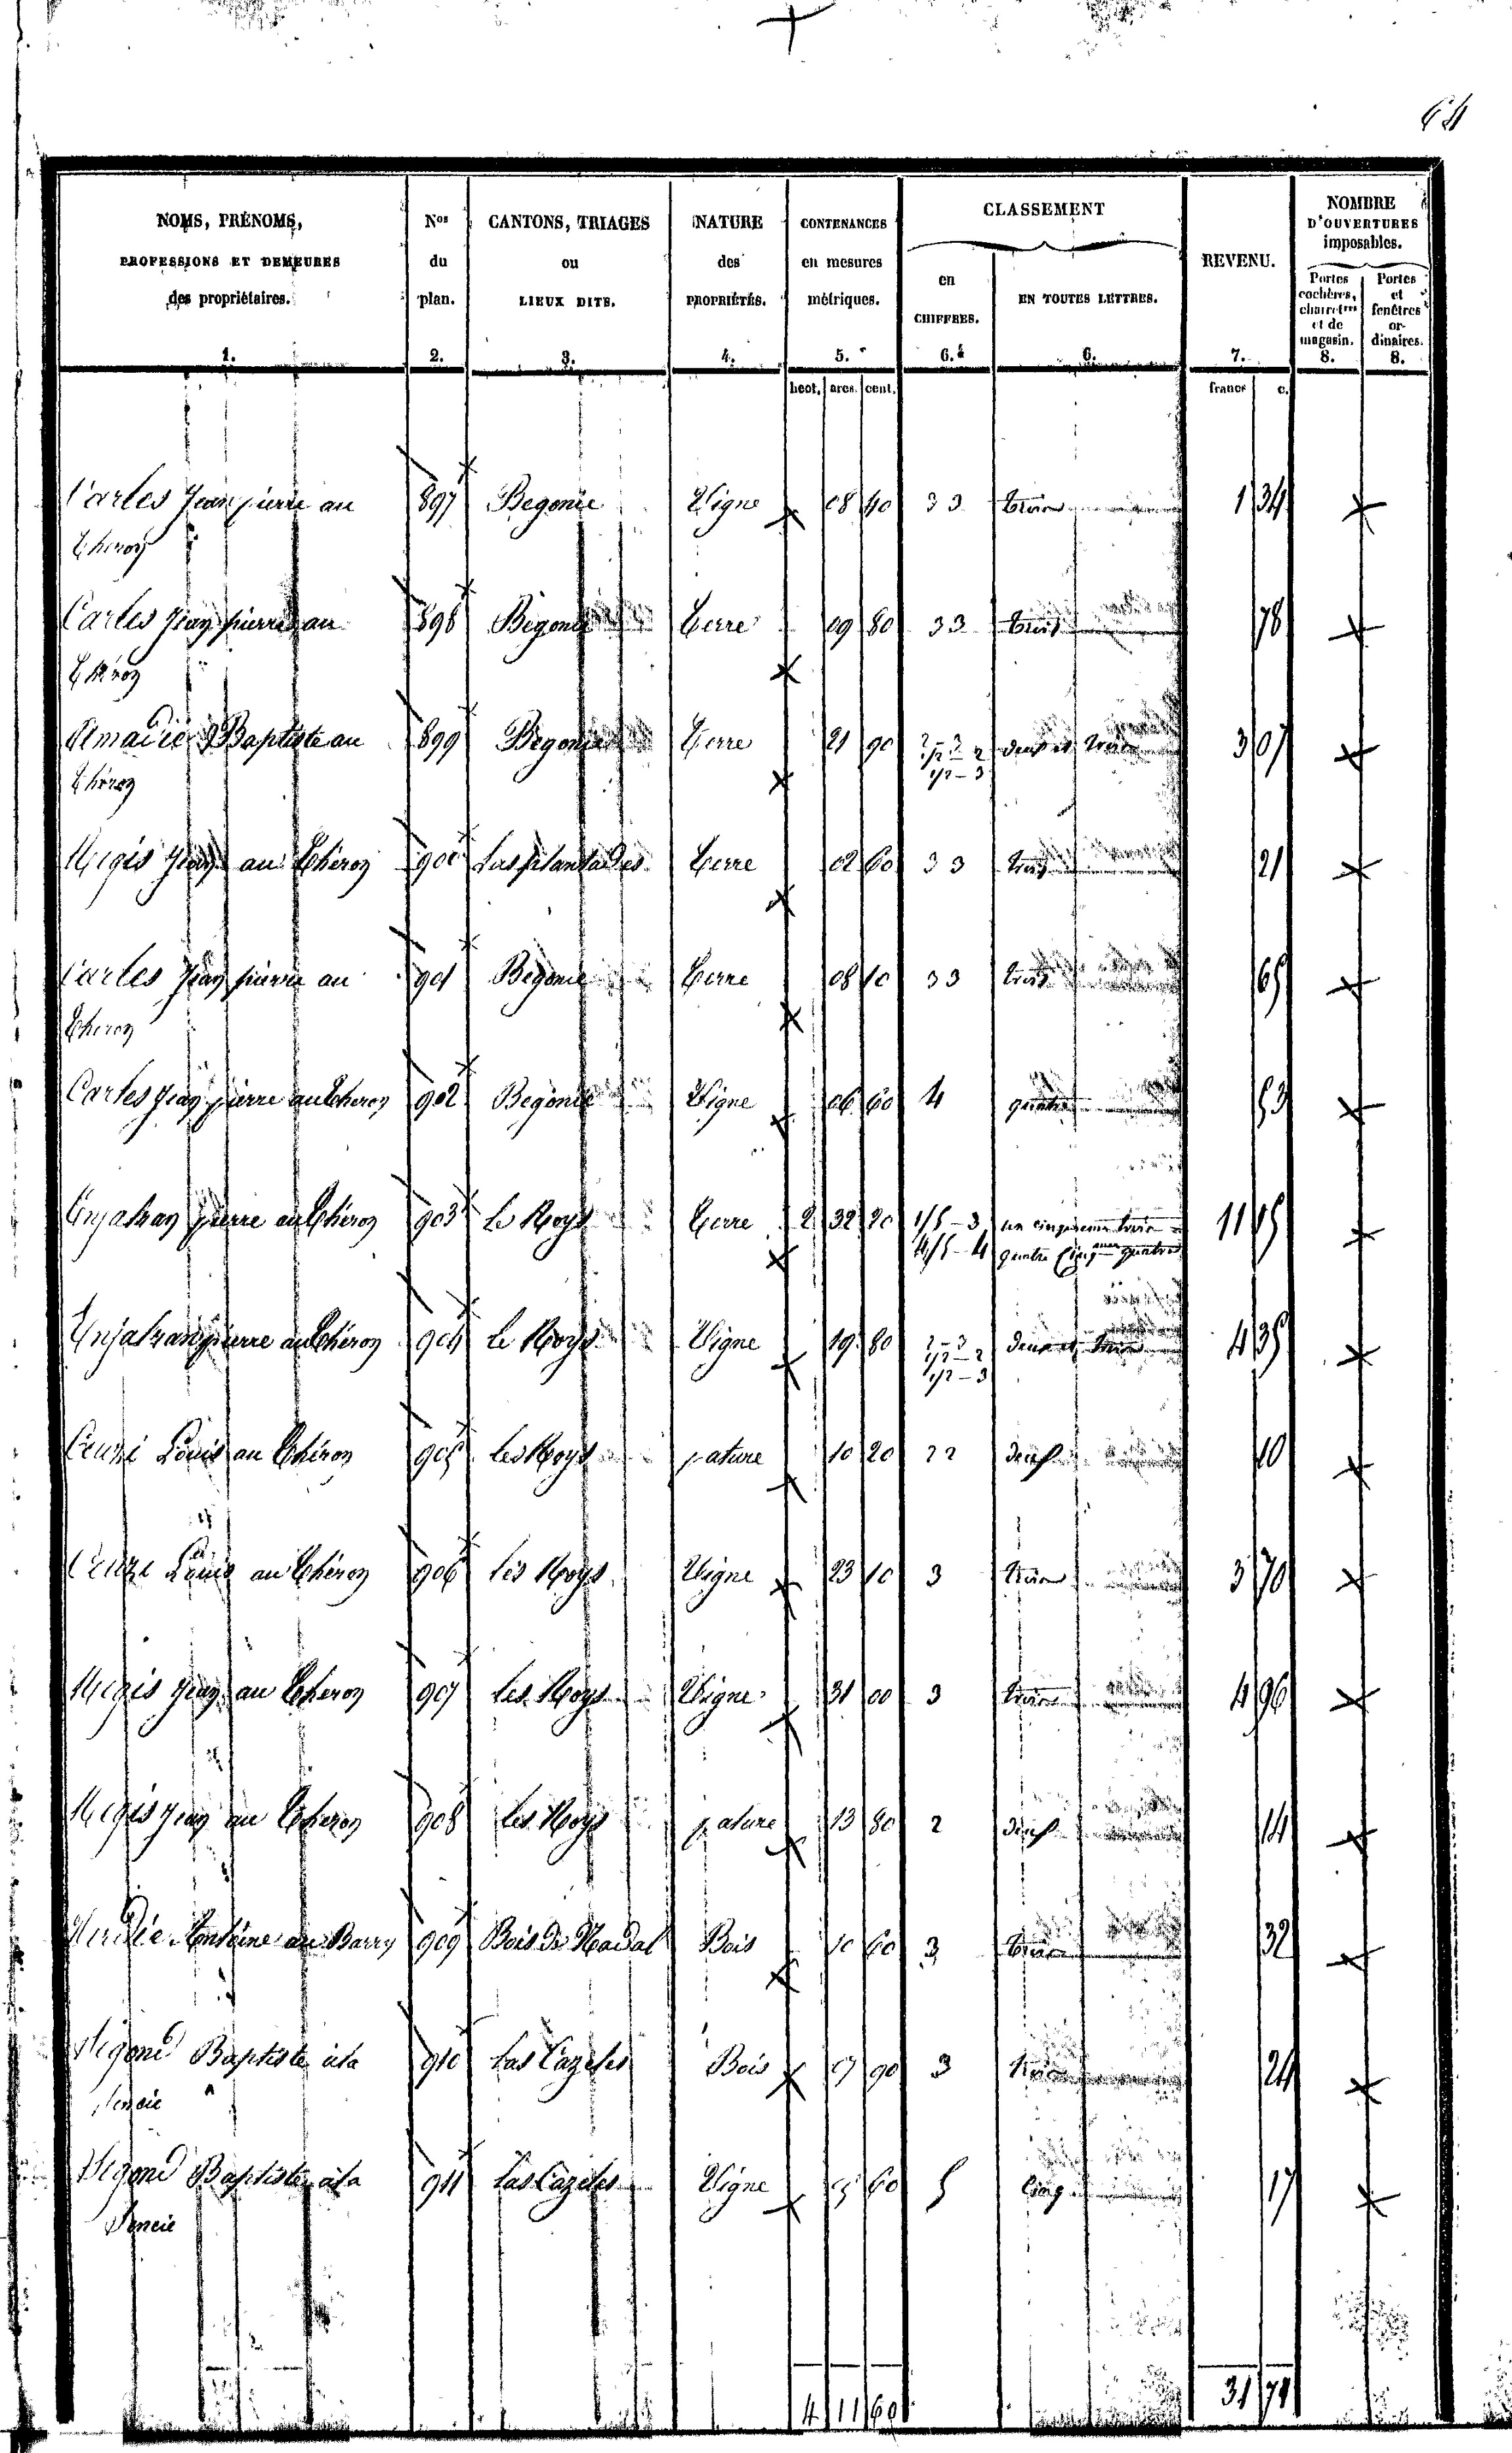 64
NOMS, PRÉNOMS, PROFESSIONS ET DEMEURES des propriétaires. 1.
Nos du plan. 2.
CANTONS, TRIAGES ou LIEUX DITS. 3.
NATURE des PROPRIÉTÉS. 4.
CONTENANCES en mesures métriques. 5.
CLASSEMENT
en CHIFFRES. 6.
EN TOUTES LETTRES. 6.
REVENU. 7.
NOMBRE D'OUVERTURES imposables.
Portes cochères, charretres et de magasin. 8.
Portes et fenêtres ordinaires. 8.
hect. ares. cent. francs c.
Carles Jean pierre au 897 Begonie Vigne 08 40 3 3 trois 1 34
Theron
Carles Jean pierre au 898 Begonie Terre 09 80 3 3 trois 78
Theron
Baptiste au 899 Begonie Terre 21 90 2-3 deux et trois 3 07
Theron 1/2-2
1/2-3
Regis Jean au Theron 900 Las plantades Terre 02 60 3 3 trois 21
Carles Jean pierre au 901 Begonie Terre 08 10 3 3 trois 65
Theron
Carles Jean pierre au Theron 902 Begonie Vigne 06 60 4 quatre 53
Enjalran pierre au Theron 903 Le Roys Terre 2 32 20 1/5-3 un cinquieme trois 11 15
4/5-4 quatre cinq quatre
Enjalran pierre au Theron 904 Le Roys Vigne 19 80 2-3 deux et trois 4 35
1/2-2
1/2-3
Louis au Theron 905 Les Roys pature 10 20 2 2 deux 10
Louis au Theron 906 Les Roys Vigne 23 10 3 trois 3 70
Regis Jean au Theron 907 Les Roys Vigne 31 00 3 trois 4 96
Regis Jean au Theron 908 Les Roys pature 13 80 2 deux 14
Antoine au Barry 909 Bois de Nadal Bois 10 60 3 trois 32
Baptiste à la 910 Las Cazeles Bois 07 90 3 trois 24
Baptiste à la 911 Las Cazeles Vigne 05 60 5 Cinq 17
4 11 60 31 71